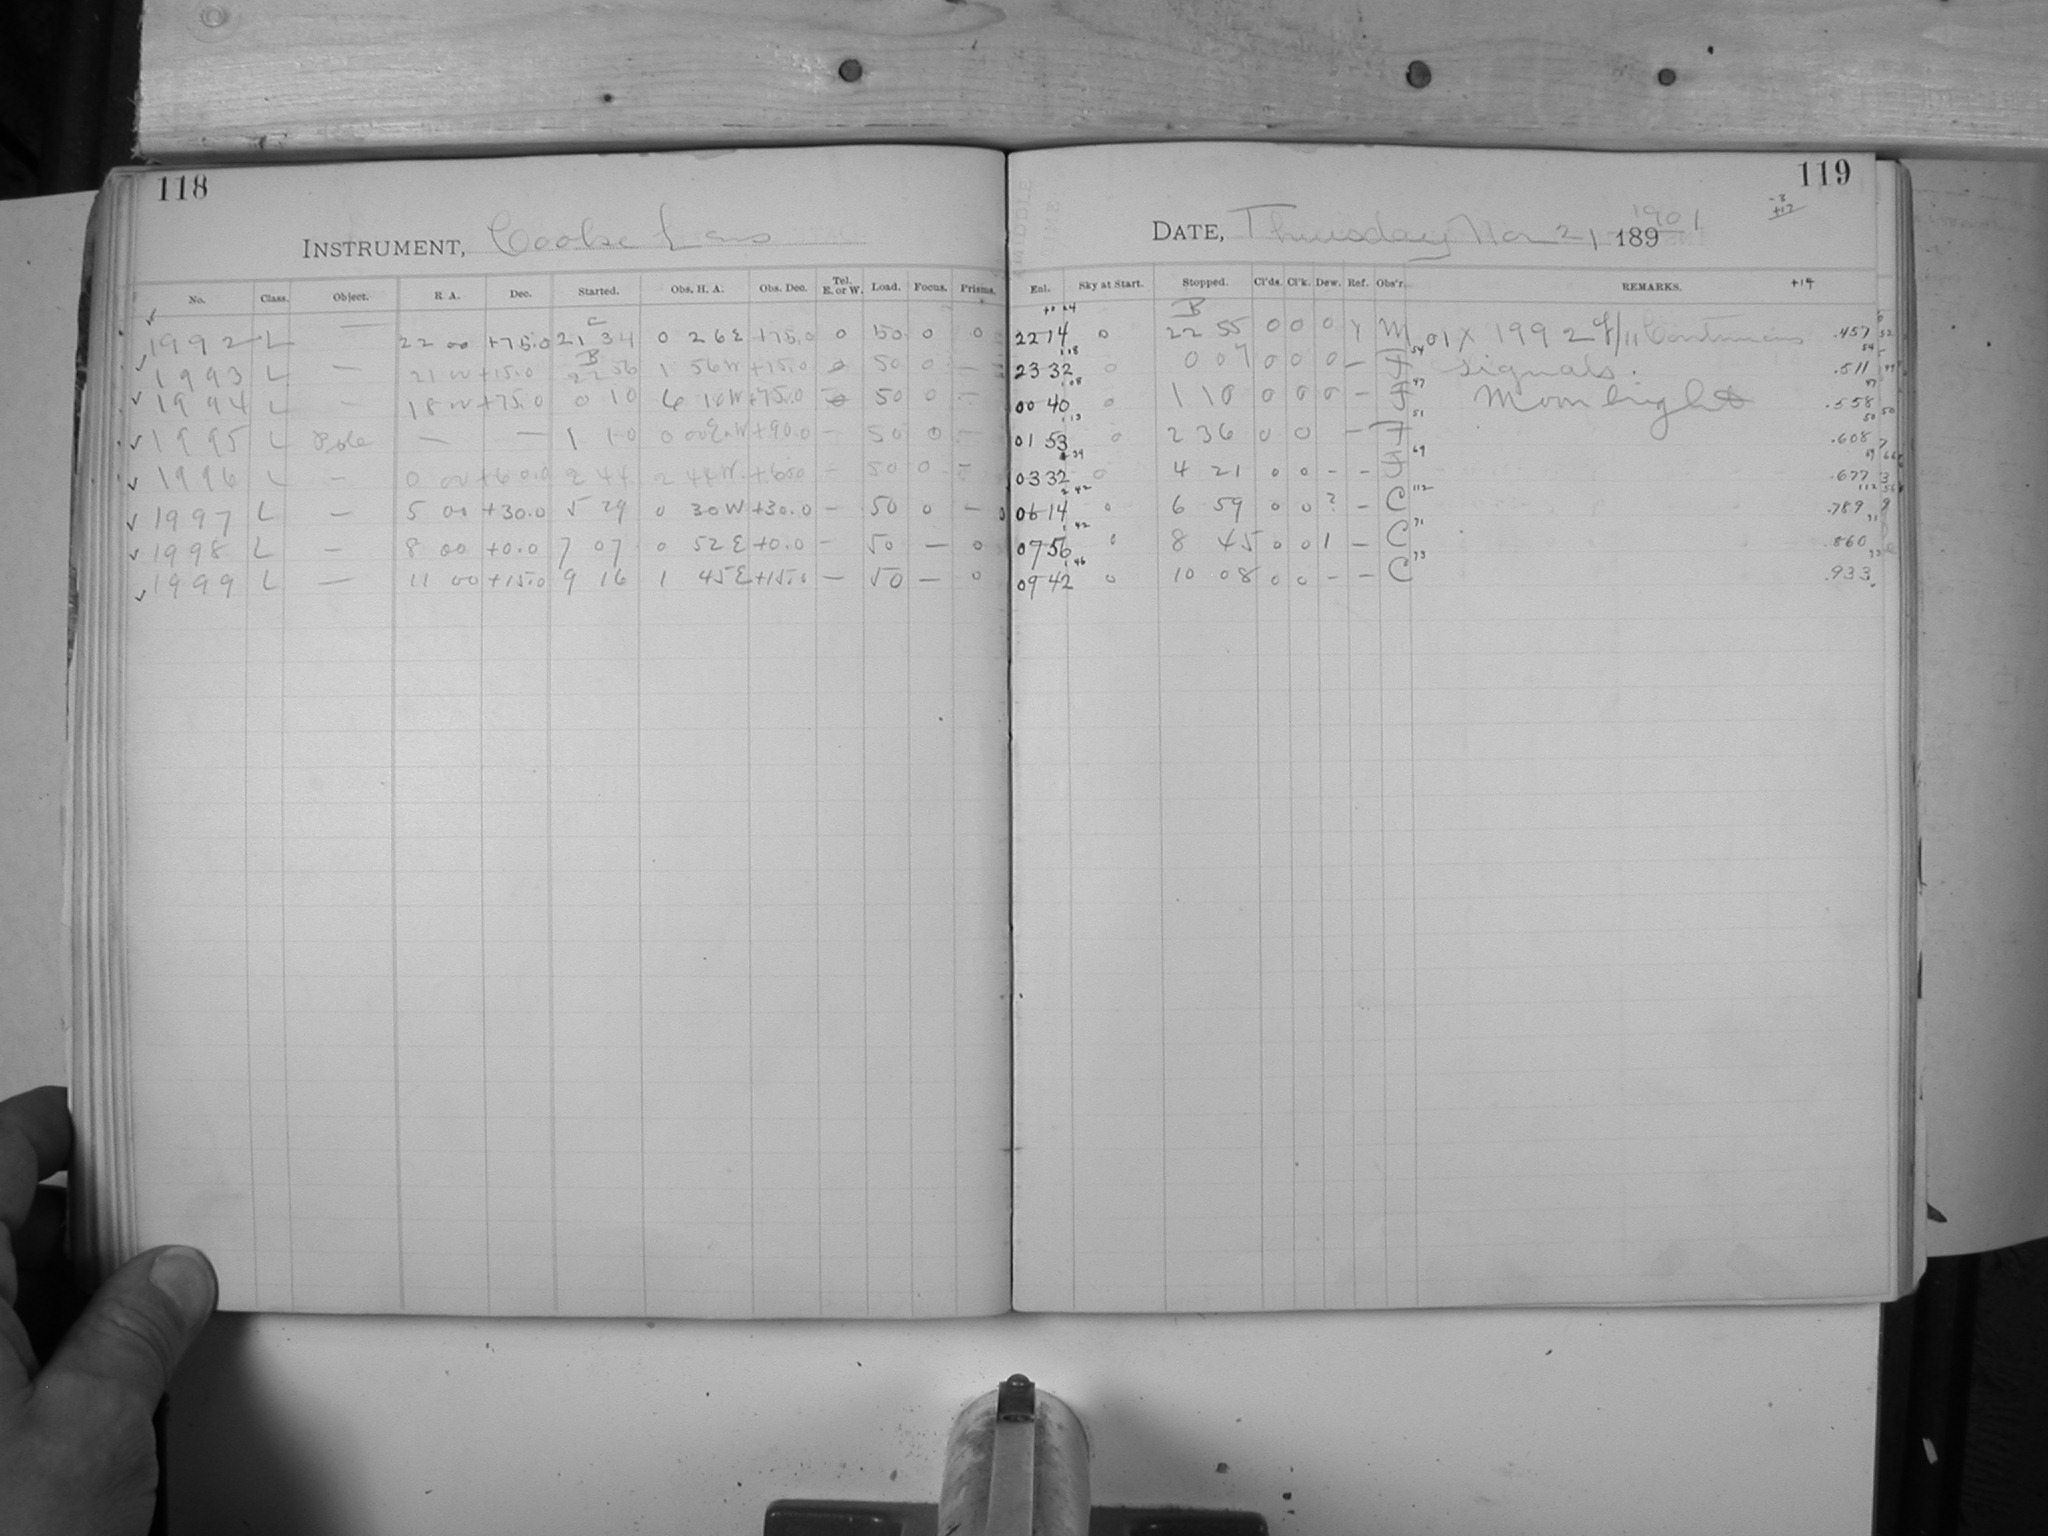 118
INSTRUMENT, Cooke Lens
No. Class. Object. R. A. Dec. Started. Obs. H. A. Obs. Dec. Tel. E. or W. Load. Focus. Prisms.
1992 L — 22 00 +75.0 21 34 0 26E +75.0 0 50 0 0
1993 L — 21 00 +15.0 22 56 1 56W +15.0 0 50 0 —
1994 L — 18 00 +75.0 0 10 6 10W +75.0 0 50 0 —
1995 L Pole — — 1 40 0 00E or W +90.0 — 50 0 —
1996 L — 0 00 +60.0 2 44 2 44W +60.0 — 50 0 —
1997 L — 5 00 +30.0 5 29 0 30W +30.0 — 50 0 — 0
1998 L — 8 00 +0.0 7 07 0 52E +0.0 — 50 — 0
1999 L — 11 00 +15.0 9 16 1 45E +15.0 — 50 — 0
119
-3
+17
DATE, Thursday Nov 21 1901 1891
Enl. Sky at Start. Stopped. Cl'ds. Cl'k. Dew. Ref. Obs'r. REMARKS. +14
2214 0 22 55 0 0 0 Y M 01X 1992 of/11 Continuous .457
2332 0 0 07 0 0 0 — F 54 Signals. .511
0040 0 1 10 0 0 0 — F 47 Moonlight .558
0153 0 2 36 0 0 — F 51 .608
0332 0 4 21 0 0 — — F 69 .677
0614 0 6 59 0 0 ? — C 112 .789
0756 0 8 45 0 0 1 — C 71 .860
0942 0 10 08 0 0 — — C 73 .933